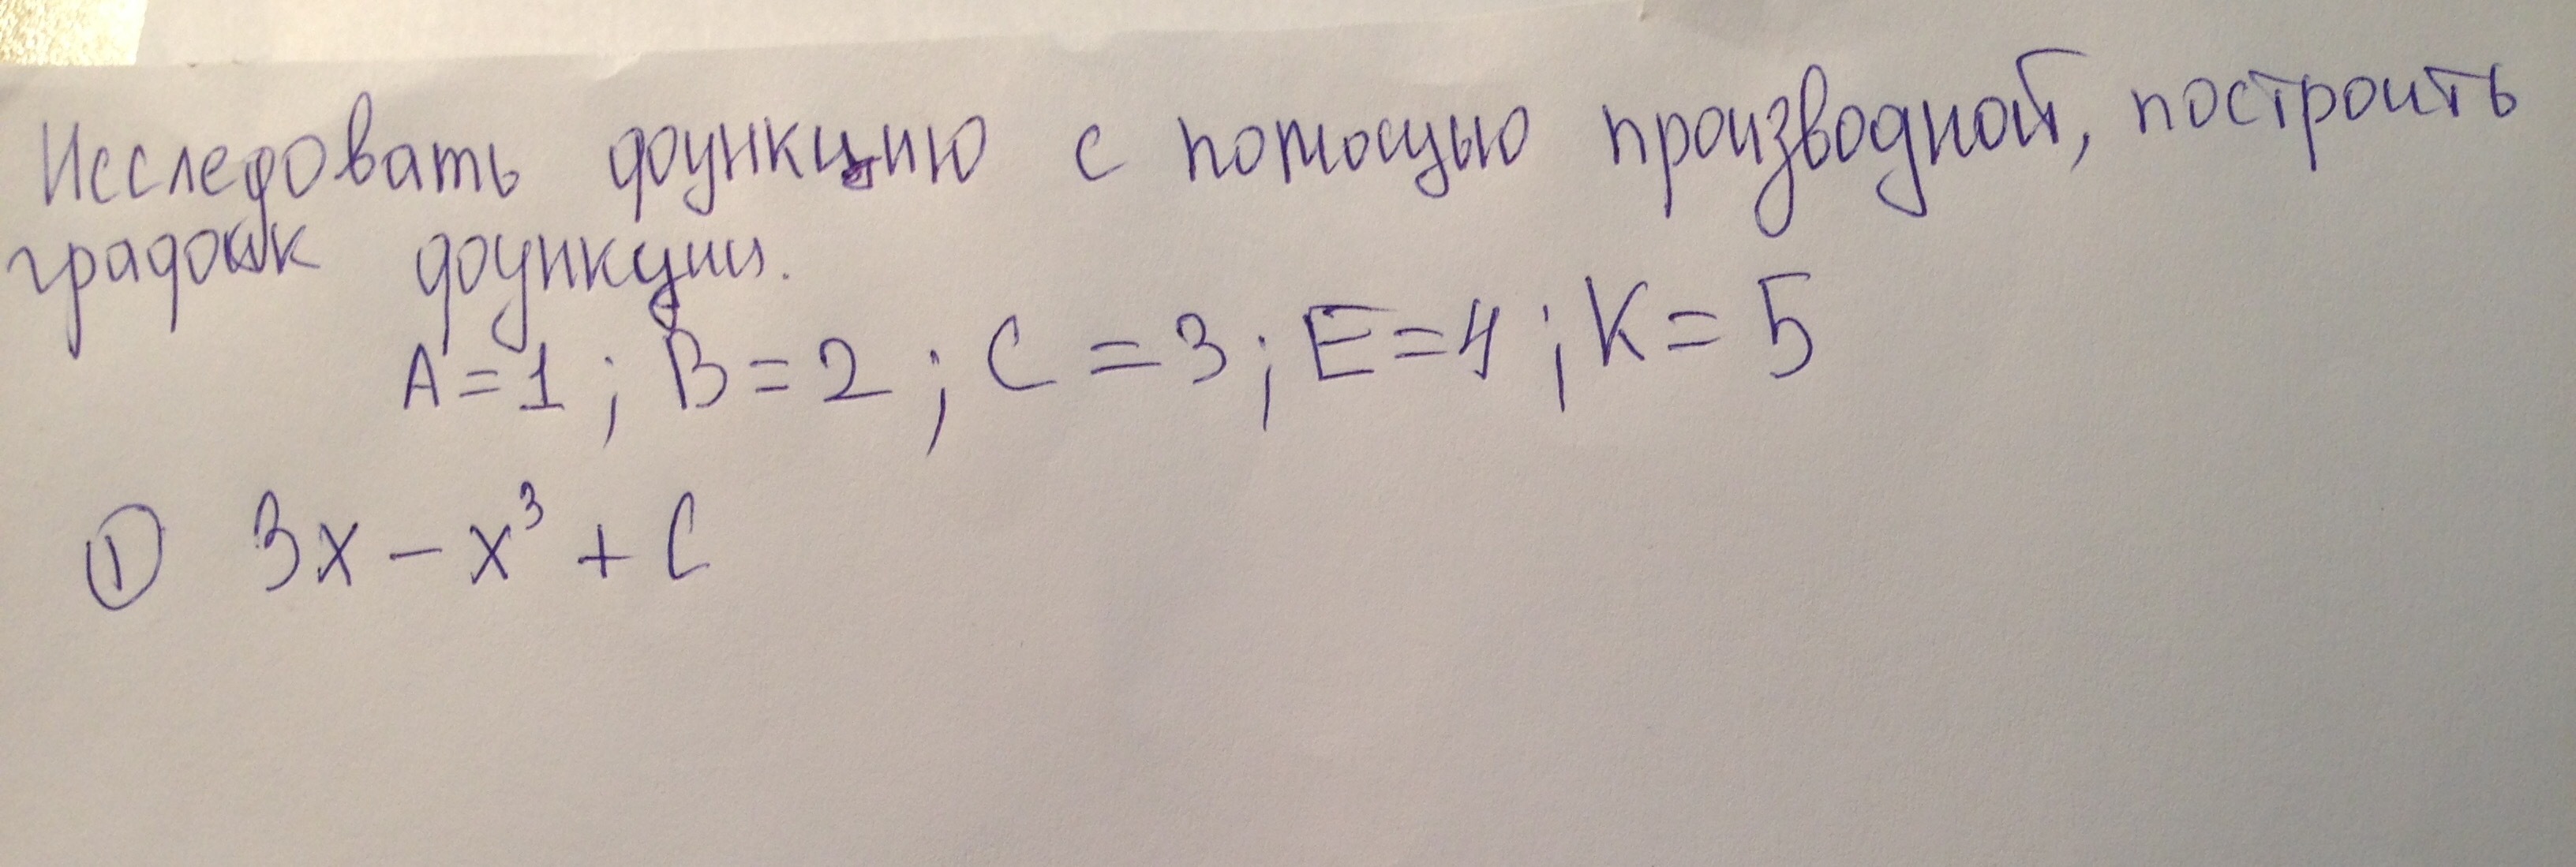 Исследовать функцию с помощью производной, построить
график функции.
A=1; B=2; C=3; E=4; K=5
① 3x - x³ + C